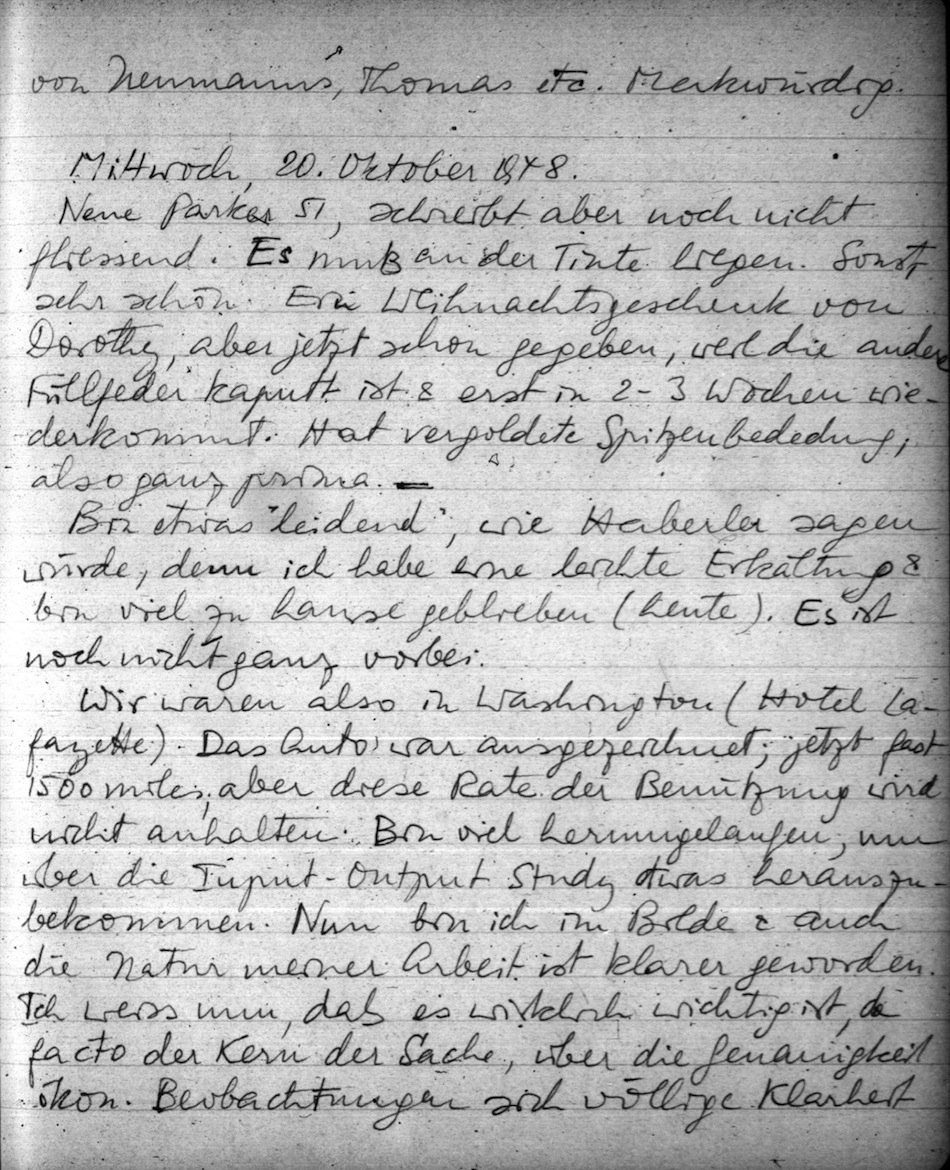 von Neumanns, Thomas etc. Merkwürdig.
Mittwoch, 20. Oktober 1948.
Neue Parker 51, schreibt aber noch nicht
fliessend. Es muß an der Tinte liegen. Sonst
sehr schön. Ein Weihnachtsgeschenk von
Dorothy, aber jetzt schon gegeben, weil die andere
Füllfeder kaputt ist & erst in 2-3 Wochen wie-
derkommt. Hat vergoldete Spitzenbedeckung,
also ganz prima. —
Bin etwas "leidend", wie Haberler sagen
würde, denn ich habe eine leichte Erkältung &
bin viel zu Hause geblieben (heute). Es ist
noch nicht ganz vorbei.
Wir waren also in Washington (Hotel La-
fayette). Das Auto war ausgezeichnet; jetzt fast
1500 miles, aber diese Rate der Benützung wird
nicht anhalten. Bin viel herumgelaufen, um
über die Input-Output Study etwas herauszu-
bekommen. Nun bin ich im Bilde & auch
die Natur meiner Arbeit ist klarer geworden.
Ich weiss nun, daß es wirklich wichtig ist, de
facto der Kern der Sache, über die Genauigkeit
ökon. Beobachtungen sich völlige Klarheit